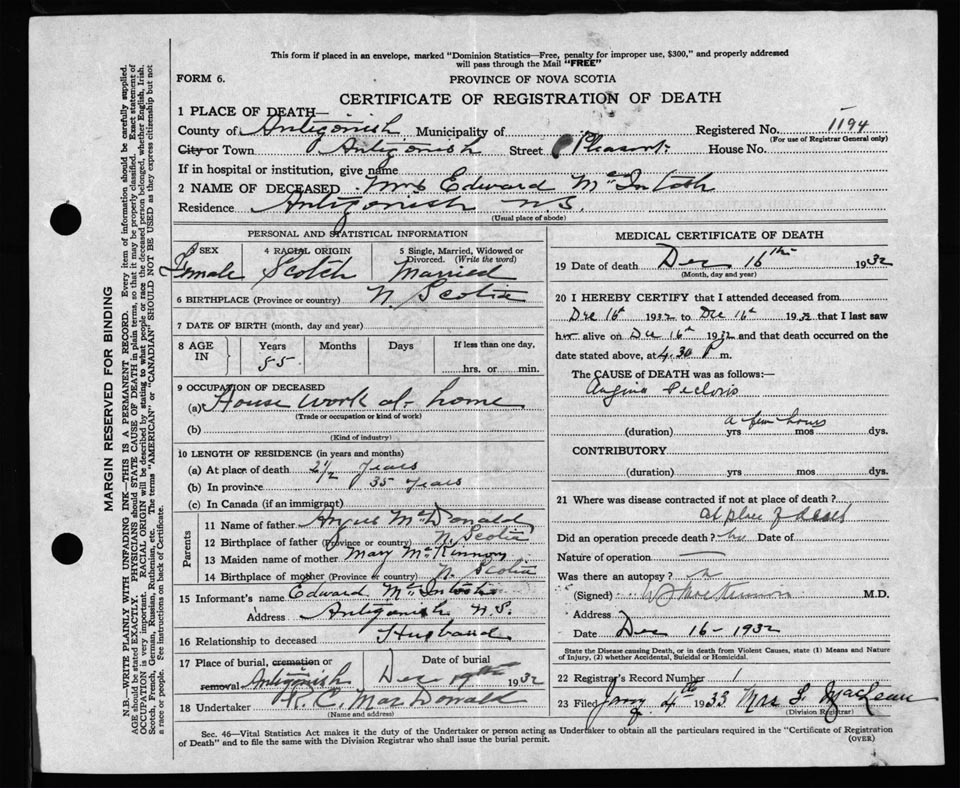 This form if placed in an envelope, marked "Dominion Statistics—Free, penalty for improper use, $300," and properly addressed
will pass through the Mail "FREE"
FORM 6.
PROVINCE OF NOVA SCOTIA
CERTIFICATE OF REGISTRATION OF DEATH
1 PLACE OF DEATH—
County of Antigonish Municipality of Registered No. 1194
(For use of Registrar General only)
City or Town Antigonish Street Pleasant House No.
If in hospital or institution, give name
2 NAME OF DECEASED Mrs Edward McIntosh
Residence Antigonish N.S.
(Usual place of abode)
PERSONAL AND STATISTICAL INFORMATION
3 SEX 4 RACIAL ORIGIN 5 Single, Married, Widowed or Divorced. (Write the word)
Female Scotch Married
6 BIRTHPLACE (Province or country) N. Scotia
7 DATE OF BIRTH (month, day and year)
8 AGE IN Years Months Days If less than one day,
55 hrs. or min.
9 OCCUPATION OF DECEASED
(a) House work at home
(Trade or occupation or kind of work)
(b)
(Kind of industry)
10 LENGTH OF RESIDENCE (in years and months)
(a) At place of death 2 1/2 years
(b) In province 35 years
(c) In Canada (if an immigrant)
Parents
11 Name of father Angus McDonald
12 Birthplace of father (Province or country) N. Scotia
13 Maiden name of mother Mary McKinnon
14 Birthplace of mother (Province or country) N. Scotia
15 Informant's name Edward McIntosh
Address Antigonish N.S.
16 Relationship to deceased Husband
17 Place of burial, cremation or removal Date of burial
Antigonish Dec 1932
18 Undertaker C. MacDonald
(Name and address)
MEDICAL CERTIFICATE OF DEATH
19 Date of death Dec 16th 1932
(Month, day and year)
20 I HEREBY CERTIFY that I attended deceased from
Dec 16th 1932 to Dec 16th 1932 that I last saw
her alive on Dec 16th 1932 and that death occurred on the
date stated above, at 4.30 P m.
The CAUSE of DEATH was as follows:—
Angina Pectoris
a few hours
(duration) yrs mos dys.
CONTRIBUTORY
(duration) yrs. mos. dys.
21 Where was disease contracted if not at place of death?
At place of death
Did an operation precede death? no Date of
Nature of operation —
Was there an autopsy? n
(Signed) M.D.
Address
Date Dec 16-1932
State the Disease causing Death, or in death from Violent Causes, state (1) Means and Nature
of Injury, (2) whether Accidental, Suicidal or Homicidal.
22 Registrar's Record Number 1
23 Filed Jany 4th 1933 Mrs MacLean
(Division Registrar)
Sec. 46—Vital Statistics Act makes it the duty of the Undertaker or person acting as Undertaker to obtain all the particulars required in the "Certificate of Registration
of Death" and to file the same with the Division Registrar who shall issue the burial permit.
(OVER)
MARGIN RESERVED FOR BINDING
N.B.—WRITE PLAINLY WITH UNFADING INK—THIS IS A PERMANENT RECORD. Every item of information should be carefully supplied.
AGE should be stated EXACTLY. PHYSICIANS should STATE CAUSE OF DEATH in plain terms, so that it may be properly classified. Exact statement of
OCCUPATION is very important. RACIAL ORIGIN will be described by stating to what people or race the deceased person belonged, whether English, Irish,
Scotch, French, German, Russian, Ruthenian, etc. The terms "AMERICAN" or "CANADIAN" SHOULD NOT BE USED as they express citizenship but not
a race or people. See instructions on back of Certificate.